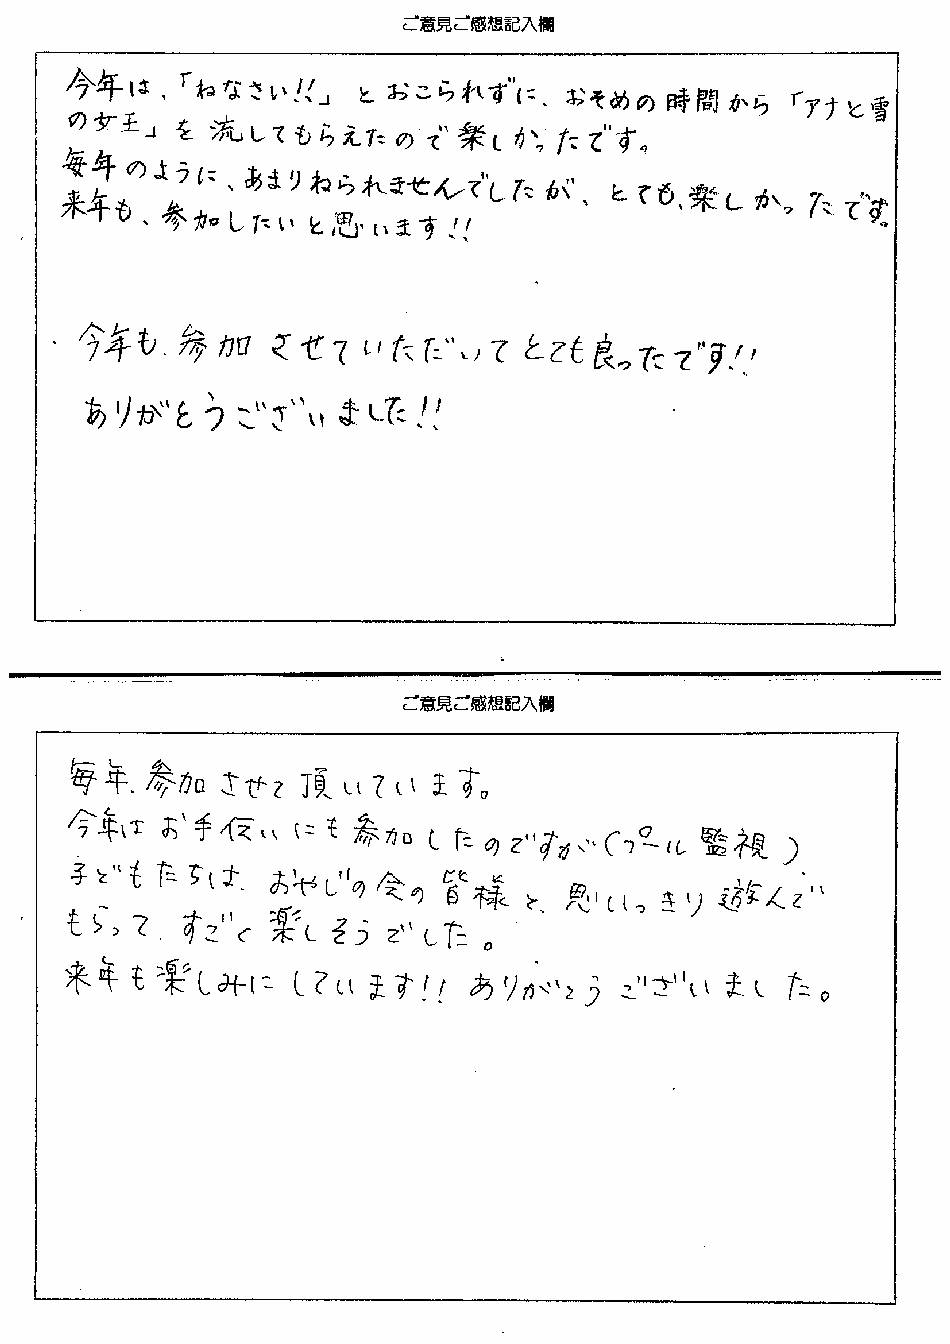 ご意見ご感想記入欄
今年は、「ねなさい!!」とおこられずに、おそめの時間から「アナと雪
の女王」を流してもらえたので楽しかったです。
毎年のように、あまりねられませんでしたが、とても、楽しかったです。
来年も、参加したいと思います!!
今年も、参加させていただいてとても良ったです!!
ありがとうございました!!
ご意見ご感想記入欄
毎年、参加させて頂いています。
今年はお手伝いにも参加したのですが(プール監視)
子どもたちは、おやじの会の皆様と、思いっきり遊んで
もらって、すごく楽しそうでした。
来年も楽しみにしています!! ありがとうございました。